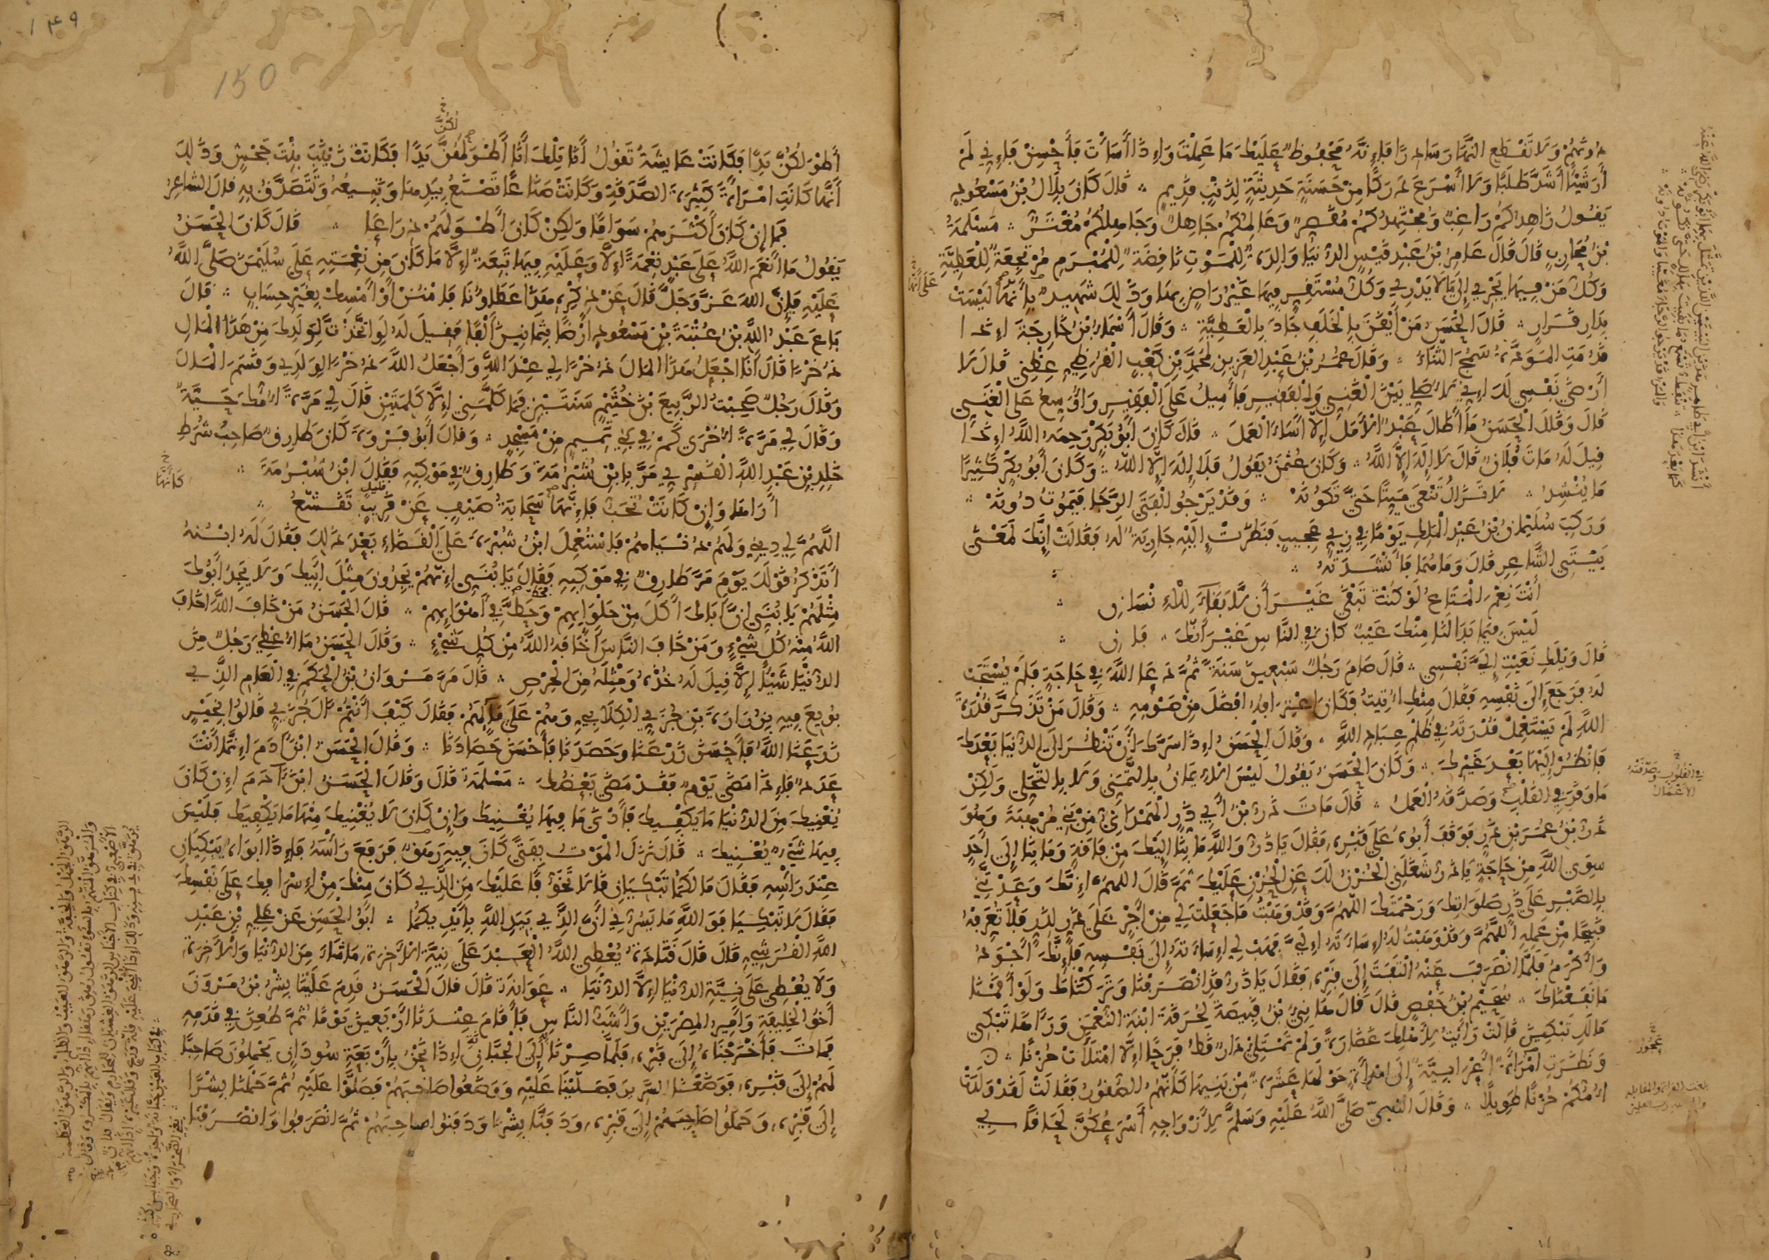 دونهم ولا تقطع النهار سادرا فإنه محفوظ عليك ما عملت وإذا أسأت فأحسن فإني لم
أر شيئا أشد طلبا ولا أسرع دركا من حسنة حديثة لذنب قديم قال كان بلال بن مسعود
يقول زاهدكم راغب ومجتهدكم مقصر وعالمكم جاهل وجاهلكم مغتر مسلمة
بن محارب قال قال عامر بن عبد قيس الدنيا والدة للموت ناقضة للمبرم مرتجعة للعطية
وكل من فيها يجري إلى ما لا يدري وكل مستقر فيها غير راض بها وذلك شهيد بأنها ليست
بدار قرار قال الحسن من أيقن بالخلف جاد بالعطية وقال أسماء بن خارجة إذا
قدمت المودة سمج الثناء وقال عمر بن عبد العزيز لمحمد بن كعب القرظي عظني قال لا
أرضى نفسي لك إني لأصلي بين الغني والفقير فأميل على الفقير وأوسع على الغني
قال وقال الحسن ما أطال عبد الأمل إلا أساء العمل قال كان أبو بكر رحمه الله إذا
قيل له مات فلان قال لا إله إلا الله وكان عثمن يقول فلا إله إلا الله وكان أبو بكر كثيرا
ما ينشد لا تزال تنعى ميتا حتى تكونه وقد يرجو الفتى الرجا فيموت دونه
وركب سليمان بن عبد الملك يوما في زي عجيب فنظرت إليه جارية له فقالت إنك لمعنى
بيتي الشاعر قال وما هما فأنشدته
أنت نعم المتاع لو كنت تبقى غير أن لا بقاء للإنسان
ليس فيما بدا لنا منك عيب كان في الناس غير أنك فان
قال ويلك نعيت إلي نفسي قال صام رجل سبعين سنة ثم دعا الله في حاجة فلم يستجب
له فرجع إلى نفسه فقال منك أتيت فكان اعترافه أفضل من صومه وقال من تذكر قدرة
الله لم يستعمل قدرته في ظلم عباد الله وقال الحسن إذا سرك أن تنظر إلى الدنيا بعدك
فانظر إليها بعد غيرك وكان الحسن يقول ليس الإيمان بالتمني ولا بالتحلي ولكن
ما وقر في القلب وصدقه العمل قال مات ذر بن أبي ذر الهمداني من بني مرهبة وهو
ذر بن عمر بن ذر فوقف أبوه على قبره فقال يا ذر والله ما بنا إليك من فاقة وما بنا إلى أحد
سوى الله من حاجة يا ذر شغلني الحزن لك عن الحزن عليك ثم قال اللهم إنك وعدتني
بالصبر على ذر صلواتك ورحمتك اللهم وقد وهبت ما جعلت لي من أجر على ذر لذر فلا تعرفه
قبيحا من عمله اللهم وقد وهبت له إساءته إلي فهب لي إساءته إلى نفسه فإنك أجود
وأكرم فلما انصرف عنه التفت إلى قبره فقال يا ذر قد انصرفنا وتركناك ولو أقمنا
ما نفعناك سحيم بن حفص قال قال هانئ بن قبيصة لحرقة ابنة النعمن ورآها تبكي
مالك تبكين قالت رأيت لأهلك غضارة ولم تمتلئ دار قط فرحا إلا امتلأت حزنا
ونظرت امرأة أعرابية إلى امرأة حولها عشرة من بنيها كأنهم الصقور فقالت لقد ولدت
أمكم حزنا طويلا وقال النبي صلى الله عليه وسلم لأزواجه أسرعكن لحاقا بي
على أنها
في القلوب وصدقته الأعمال
عجوز
149
150
لكن
أطولكن يدا فكانت عايشة تقول أنا تلك أنا أطولكن يدا فكانت زينب بنت جحش وذلك
أنها كانت امرأة كثيرة الصدقة وكانت صناعا تصنع بيدها وتبيعه وتتصدق به قال الشاعر
فما إن كان أكثرهم سواما ولكن كان أطولهم ذراعا قال كان الحسن
يقول ما أنعم الله على عبد نعمة إلا وعليه فيها تبعة إلا ما كان من نعمته على سليمن صلى الله
عليه فإن الله عز وجل قال عن ذكره هذا عطاؤنا فامنن أو أمسك بغير حساب قال
باع عبد الله بن عتبة بن مسعود أرضا بثمانين ألفا فقيل له لو اتخذت لولدك من هذا المال
ذخرا قال أنا أجعل هذا المال ذخرا لي عند الله وأجعل الله ذخرا لولدي وقسم المال
وقال رجل صحبت الربيع بن خثيم سنتين فما كلمني إلا كلمتين قال لي مرة أمك حية
وقال لي مرة أخرى كم في بني تميم من مسجد وقال أبو فروة كان طارق صاحب شرط
خالد بن عبد الله القسري مر بابن شبرمة وطارق في موكبه فقال ابن شبرمة
أراها وإن كانت تحب فإنها سحابة صيف عن قريب تقشع
اللهم لي ديني ولهم دنياهم فاستعمل ابن شبرمة على القضاء بعد ذلك فقال له ابنه
أتذكر قولك يوم مر طارق في موكبه فقال يا بني إنهم يجدون مثل أبيك ولا يجد أبوك
مثلهم يا بني إن أباك أكل من حلوائهم وحط في أهوائهم قال الحسن من خاف الله أخاف
الله منه كل شيء ومن خاف الناس أخافه الله من كل شيء وقال الحسن ما أعطي رجل من
الدنيا شيئا إلا قيل له خذه ومثله من الحرص قال مر مروان بن الحكم في العام الذي
بويع فيه بزرارة بن جزي الكلابي وهم على ماء لهم فقال كيف أنتم آل جزي قالوا بخير
زرعنا الله فأحسن زرعنا وحصدنا فأحسن حصادنا وقال الحسن ابن آدم إنما أنت
عدد فإذا مضى يوم فقد مضى بعضك مسلمة قال وقال الحسن ابن آدم إن كان
يغنيك من الدنيا ما يكفيك فأدنى ما فيها يغنيك وإن كان لا يغنيك منها ما يكفيك فليس
فيها شيء يغنيك قال نزل الموت بفتى كان فيه رهق فرفع رأسه فإذا أبواه يبكيان
عند رأسه فقال ما لكما تبكيان قالا تخوفا عليك من الذي كان منك من إسرافك على نفسك
فقال لا تبكيا فو الله ما يسرني أن الذي بيد الله بأيديكما أبو الحسن عن علي بن عبد
الله القرشي قال قال قتادة يعطي الله العبد على نية الآخرة ما شاء من الدنيا والآخرة
ولا يعطي على نية الدنيا إلا الدنيا عوانة قال قال الحسن قدم علينا بشر بن مروان
أخو الخليفة وأمير المصرين وأشب الناس فأقام عندنا أربعين يوما ثم طعن في قدمه
فمات فأخرجناه إلى قبره فلما صرنا إلى الجبان إذا نحن بأربعة سودان يحملون صاحبا
لهم إلى قبره فوضعنا السرير فصلينا عليه ووضعوا صاحبهم فصلوا عليه ثم حملنا بشرا
إلى قبره وحملوا صاحبهم إلى قبره ودفنا بشرا ودفنوا صاحبهم ثم انصرفوا وانصرفنا
كأنها